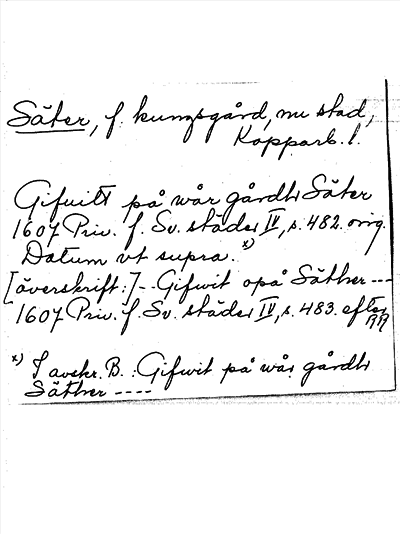 Säter, f. kungsgård, nu stad,
Kopparb. l.
Gifuitt på wår gårdh Säter
1607 Priv. f. Sv. städer IV, s. 482. orig.
Datum vt supra. x)
[överskrift:] - - Gifwit opå Säther - - -
1607 Priv. f. Sv. städer IV, s. 483. efter
RR
x) I avskr. B.: Gifwit på wår gårdh
Säther - - - -